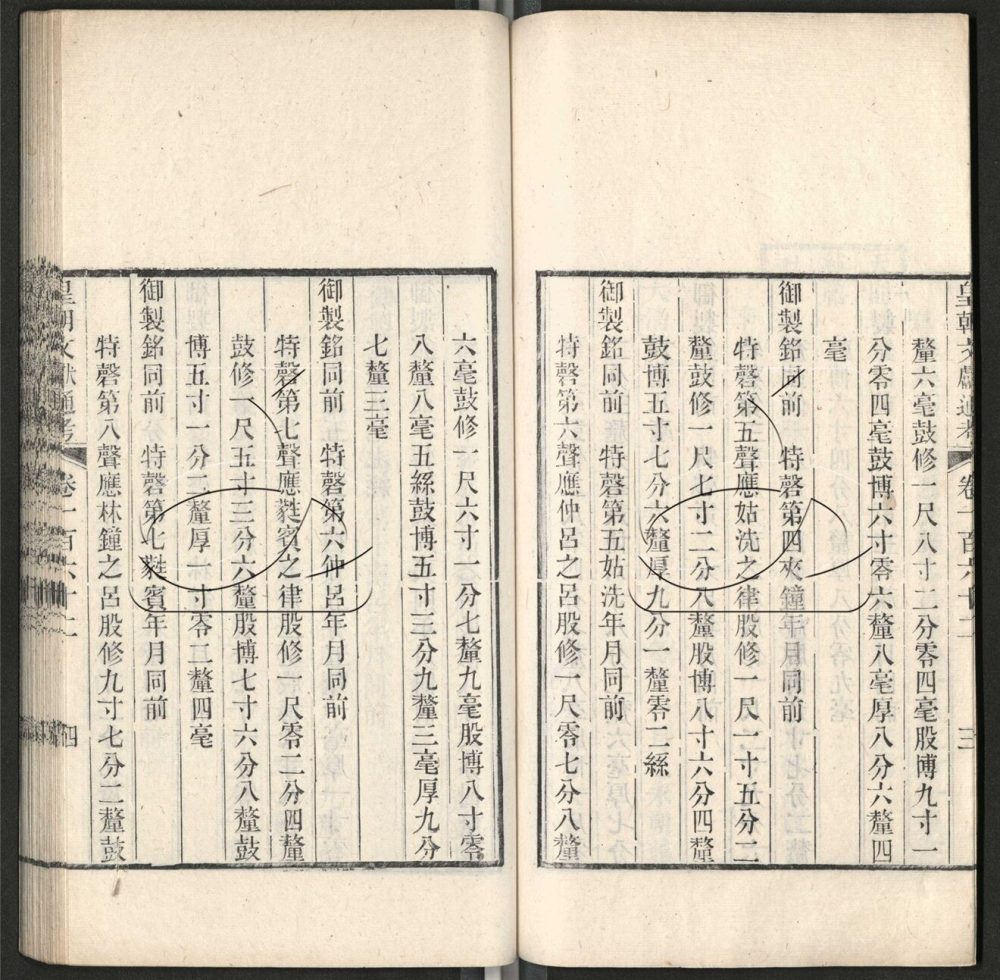 皇朝文獻通考 卷一百六十二 三
釐六毫鼓修一尺八寸二分零四毫股博九寸一
分零四毫鼓博六寸零六釐八毫厚八分六釐四
毫
御製銘同前 特磬第四夾鐘年月同前
特磬第五聲應姑洗之律股修一尺一寸五分二
釐鼓修一尺七寸二分八釐股博八寸六分四釐
鼓博五寸七分六釐厚九分一釐零二絲
御製銘同前 特磬第五姑洗年月同前
特磬第六聲應仲呂之呂股修一尺零七分八釐
六毫鼓修一尺六寸一分七釐九毫股博八寸零
八釐八毫五絲鼓博五寸三分九釐三毫厚九分
七釐三毫
御製銘同前 特磬第六仲呂年月同前
特磬第七聲應蕤賓之律股修一尺零二分四釐
鼓修一尺五寸三分六釐股博七寸六分八釐鼓
博五寸一分二釐厚一寸零二釐四毫
御製銘同前 特磬第七蕤賓年月同前
特磬第八聲應林鐘之呂股修九寸七分二釐鼓
皇朝文獻通考 卷一百六十二 四